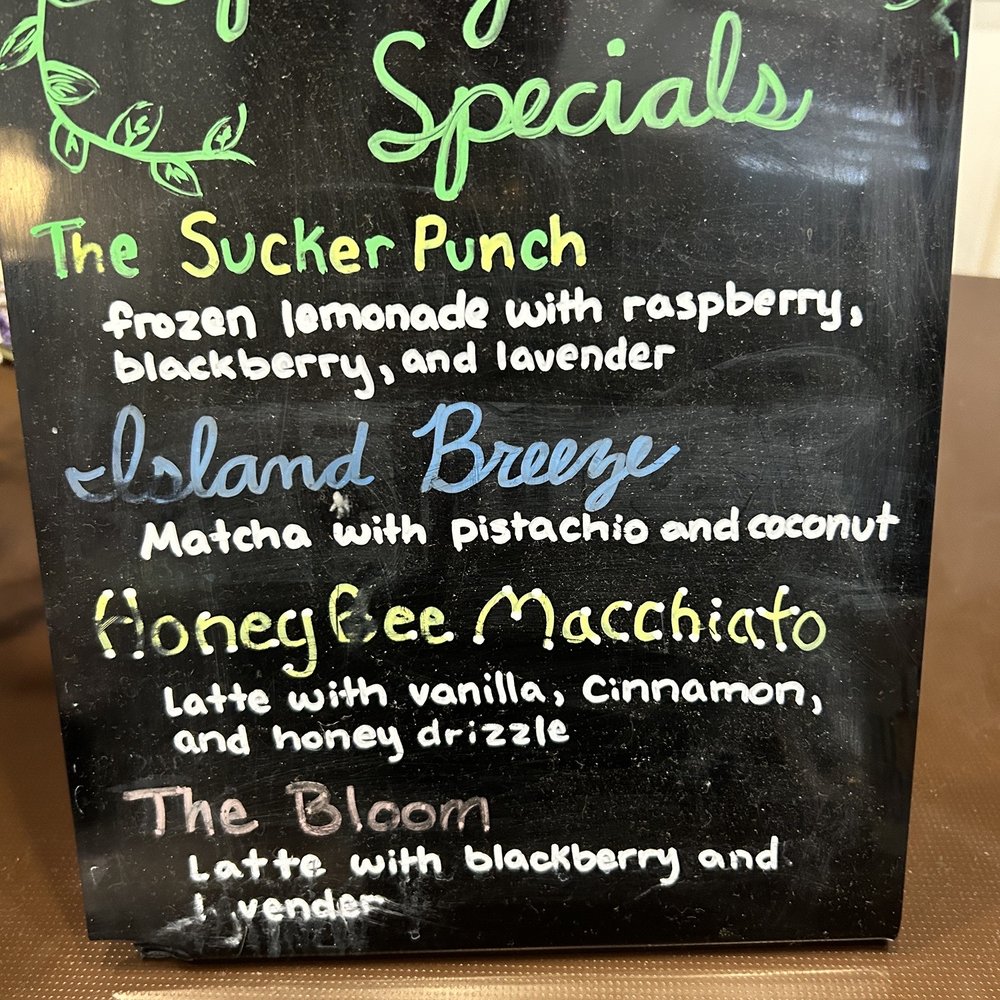 Specials
The Sucker Punch
frozen lemonade with raspberry,
blackberry, and lavender
Island Breeze
Matcha with pistachio and coconut
Honey Bee Macchiato
Latte with vanilla, cinnamon,
and honey drizzle
The Bloom
Latte with blackberry and